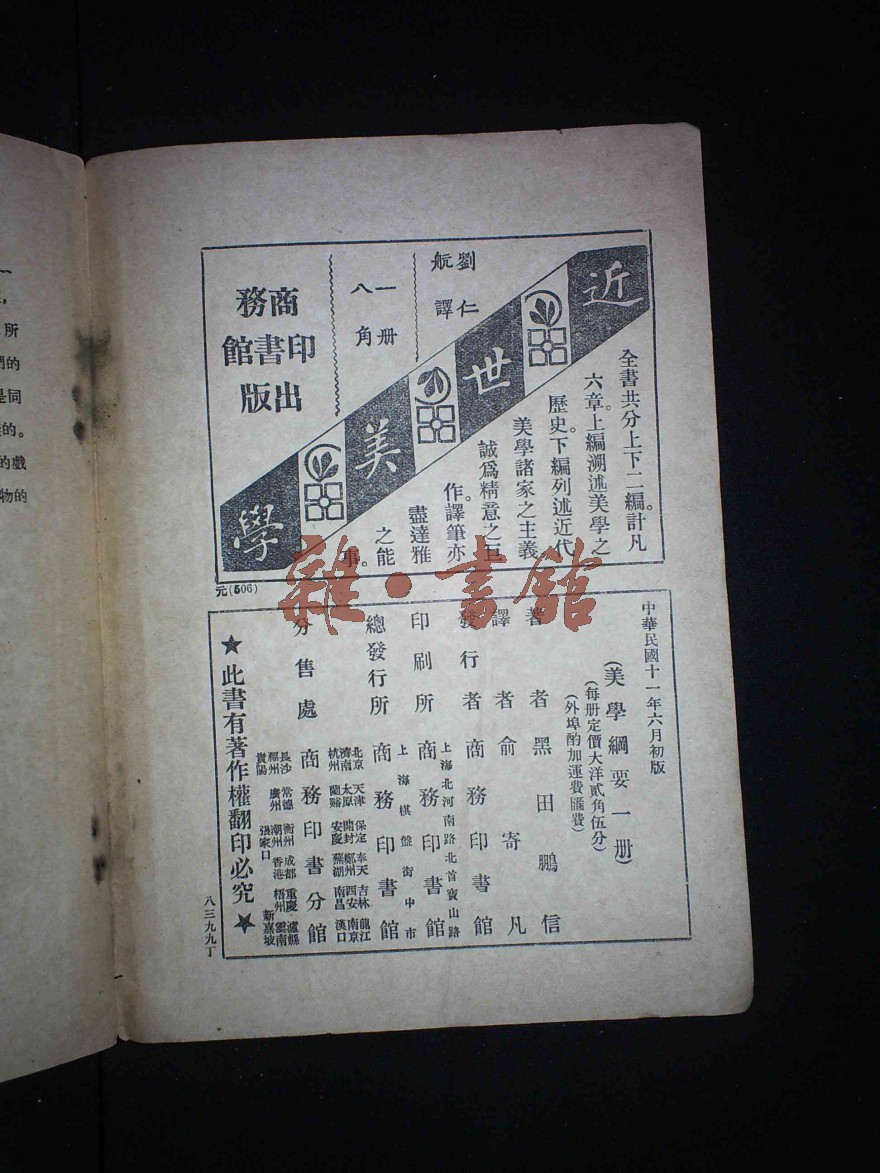 近世美學
全書共分上下二編。計凡
六章。上編溯述美學之
歷史。下編列述近代
美學諸家之主義
誠爲精意之巨
作。譯筆亦
盡達雅
之能
事。
劉仁航譯
一册
八角
商務印書館出版
元(506)
中華民國十一年六月初版
(美學綱要一册)
(每册定價大洋貳角伍分)
(外埠酌加運費匯費)
著者 黑田鵬信
譯者 俞寄凡
發行者 商務印書館
上海北河南路北首寶山路
印刷所 商務印書館
上海棋盤街中市
總發行所 商務印書館
分售處 商務印書分館
北京 天津 保定 奉天 吉林 龍江
濟南 太原 開封 鄭州 西安 南京
杭州 蘭谿 安慶 蕪湖 南昌 漢口
長沙 常德 衡州 成都 重慶 瀘縣
福州 廣州 潮州 香港 梧州 雲南
貴陽 張家口 新嘉坡
★此書有著作權翻印必究★
八三九九丁
雜·書館
所
們的
是同
的。
的戲
物的